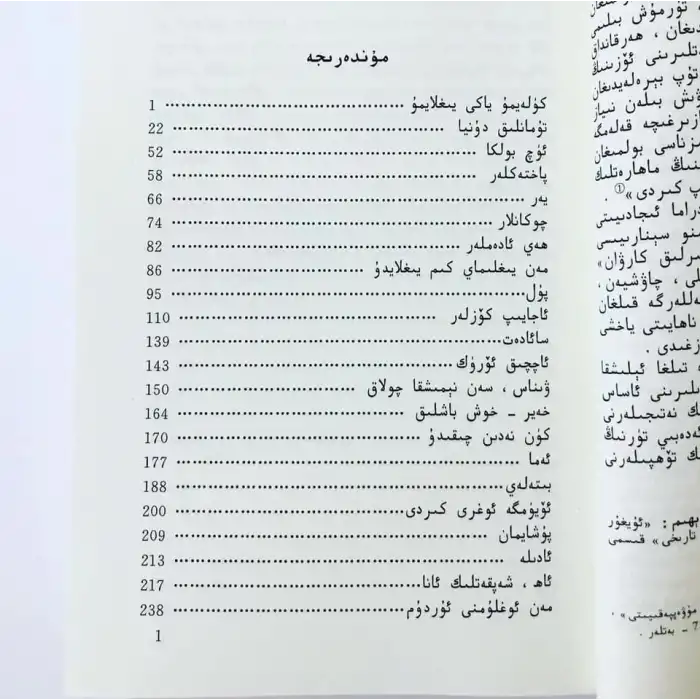 مۇندەرىجە
كۈلەيمۇ ياكى يىغلايمۇ ........................................ 1
تۇمانلىق دۇنيا ........................................ 22
ئۈچ بولكا ........................................ 52
پاختەكلەر ........................................ 58
يەر ........................................ 66
چوكانلار ........................................ 74
ھەي ئادەملەر ........................................ 82
مەن يىغلىماي كىم يىغلايدۇ ........................................ 86
پۇل ........................................ 95
ئاجايىپ كۆزلەر ........................................ 110
سائادەت ........................................ 139
ئاچچىق ئۆرۈك ........................................ 143
ۋىناس ، سەن نېمىشقا چولاق ........................................ 150
خەير - خوش باشلىق ........................................ 164
كۈن نەدىن چىقىدۇ ........................................ 170
ئەما ........................................ 177
بىتەلەي ........................................ 188
ئۆيۈمگە ئوغرى كىردى ........................................ 200
پۇشايمان ........................................ 209
ئادىلە ........................................ 213
ئاھ ، شەپقەتلىك ئانا ........................................ 217
مەن ئوغلۇمنى ئۇردۇم ........................................ 238
1
، تۇرمۇش بىلىمى
دىغان ، ھەرقانداق
تلىرىنى ئۆزىنىڭ
تۇپ بېرەلەيدىغان
ۋش بىلەن نىياز
ازىرغىچە قەلەمگە
ىزناسى بولمىغان
نىڭ ماھارەتلىك
پ كىردى»① .
دراما ئىجادىيىتى
ىنو سېنارىيىسى
سىرلىق كارۋان»
لى ، چاۋشيەن ،
ەللەرگە قىلغان
ناھايىتى ياخشى
زغىدى .
ە تىلغا ئېلىشقا
ىلىرىنى ئاساس
ك نەتىجىلەرنى
ئەدەبىي تۈرنىڭ
ك تۆھپىلەرنى
بھىم : «ئۇيغۇر
تارىخى» قىسمى
مۇۋەپپەقىيىتى» .
7 - بەتلەر .